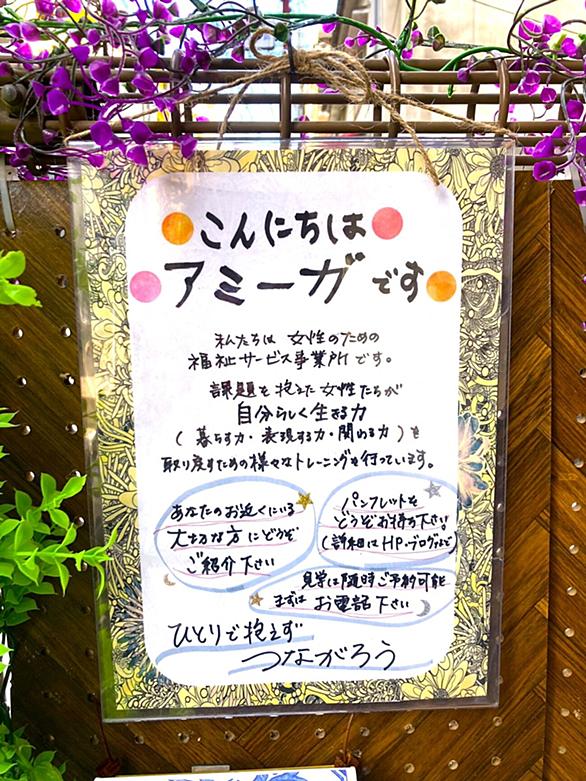 こんにちは
アミーガです
私たちは 女性のための
福祉サービス事業所です。
課題を抱えた女性たちが
自分らしく生きる力
(暮らす力・表現する力・関わる力)を
取り戻すための様々なトレーニングを行っています。
あなたのお近くにいる
大切な方にどうぞ
ご紹介下さい
パンフレットを
どうぞお持ち下さい!
(詳細はHP・ブログなど)
見学は随時ご予約可能
まずは お電話下さい
ひとりで抱えず
つながろう